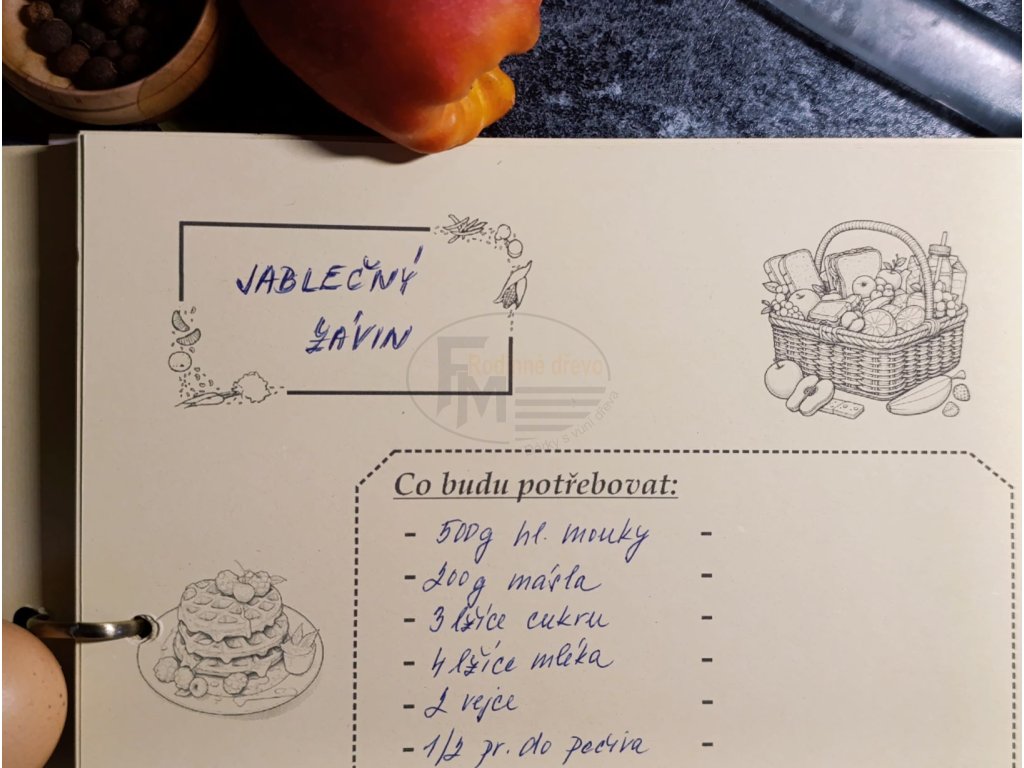 JABLEČNÝ
ZÁVIN
FM Rodinné dřevo
Dárky s vůní dřeva
Co budu potřebovat:
- 500g hl. mouky -
- 200g másla -
- 3 lžíce cukru -
- 4 lžíce mléka -
- 2 vejce -
- 1/2 pr. do pečiva -